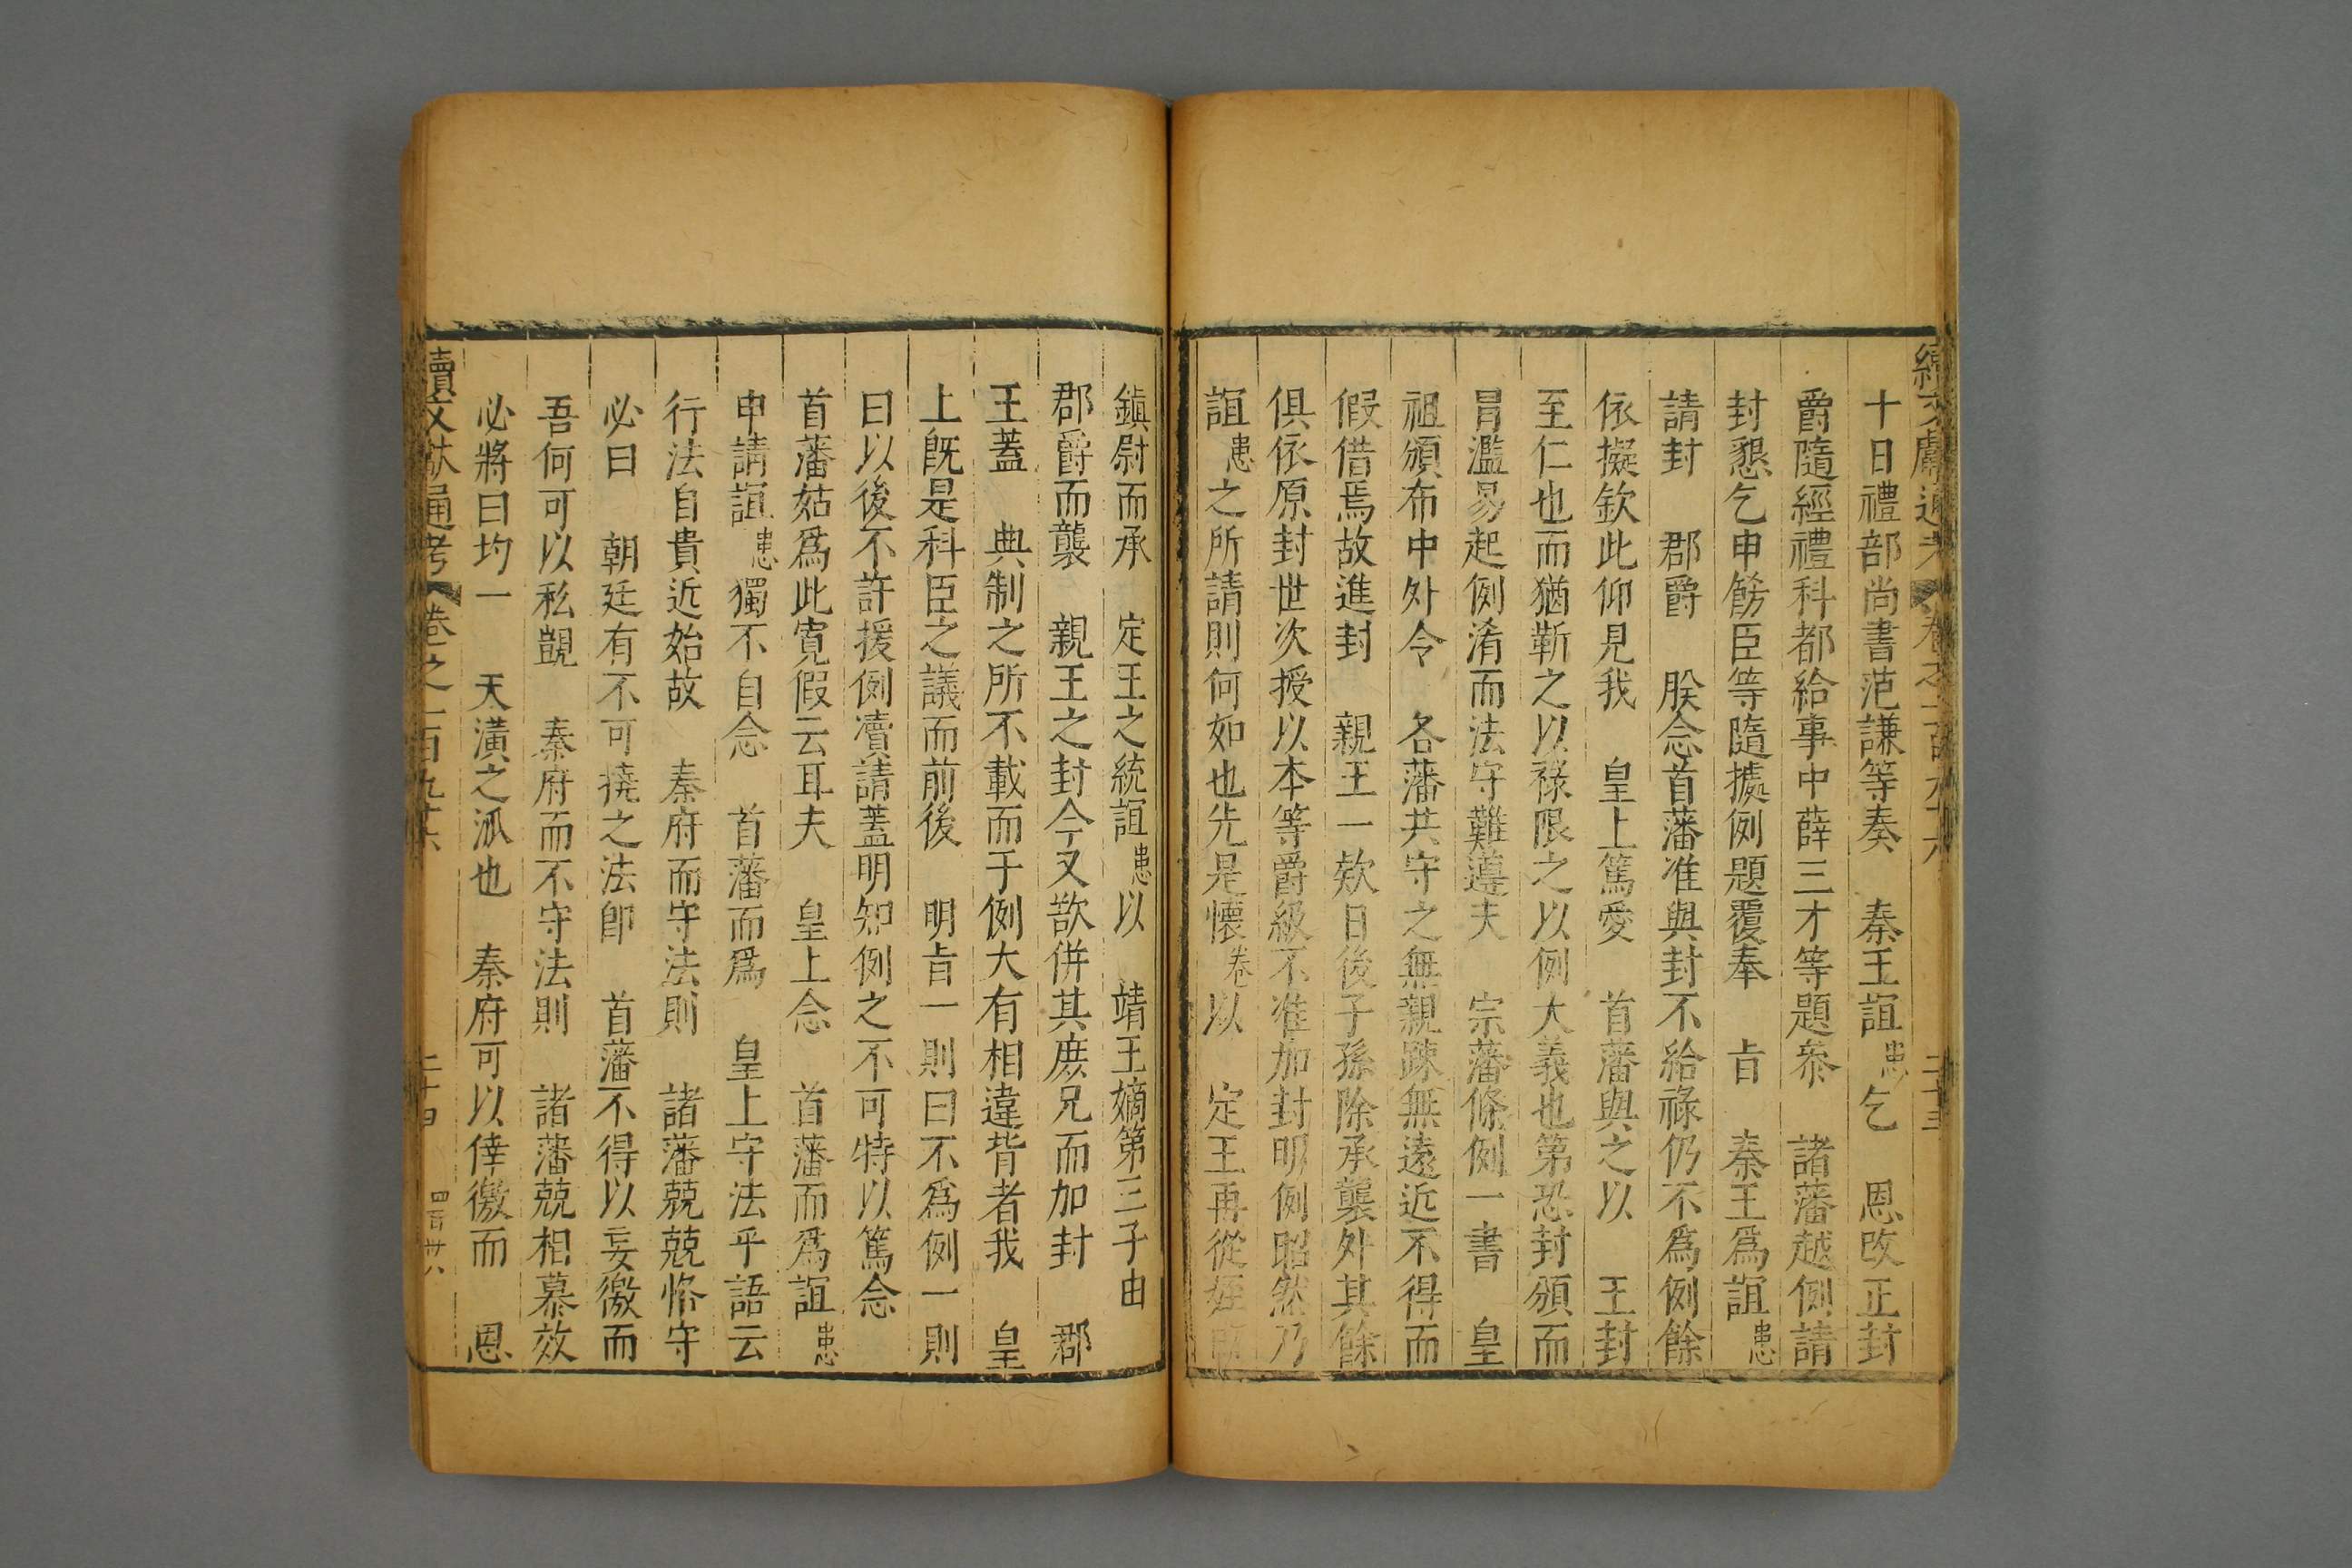 續文獻通考 卷之一百九十六 二十三
十日禮部尚書范謙等奏 秦王誼漶乞 恩改正封
爵隨經禮科都給事中薛三才等題叅 諸藩越例請
封懇乞申飭臣等隨據例題覆奉 旨 秦王爲誼漶
請封 郡爵 朕念首藩准與封不給祿仍不爲例餘
依擬欽此仰見我 皇上篤愛 首藩與之以 王封
至仁也而猶靳之以祿限之以例大義也第恐封頒而
冒濫易起例淆而法守難遵夫 宗藩條例一書 皇
祖頒布中外令 各藩共守之無親踈無遠近不得而
假借焉故進封 親王一欵日後子孫除承襲外其餘
俱依原封世次授以本等爵級不准加封明例昭然乃
誼漶之所請則何如也先是懷埢以 定王再從姪由
鎮尉而承 定王之統誼漶以 靖王嫡第三子由
郡爵而襲 親王之封今又欲併其庶兄而加封 郡
王蓋 典制之所不載而于例大有相違背者我 皇
上旣是科臣之議而前後 明旨一則曰不爲例一則
曰以後不許援例瀆請蓋明知例之不可特以篤念
首藩姑爲此寛假云耳夫 皇上念 首藩而爲誼漶
申請誼漶獨不自念 首藩而爲 皇上守法乎語云
行法自貴近始故 秦府而守法則 諸藩兢兢恪守
必曰 朝廷有不可撓之法卽 首藩不得以妄徼而
吾何可以私覬 秦府而不守法則 諸藩兢相慕效
必將曰均一 天潢之派也 秦府可以倖徼而 恩
續文獻通考 卷之一百九十六 二十四 四百卅八